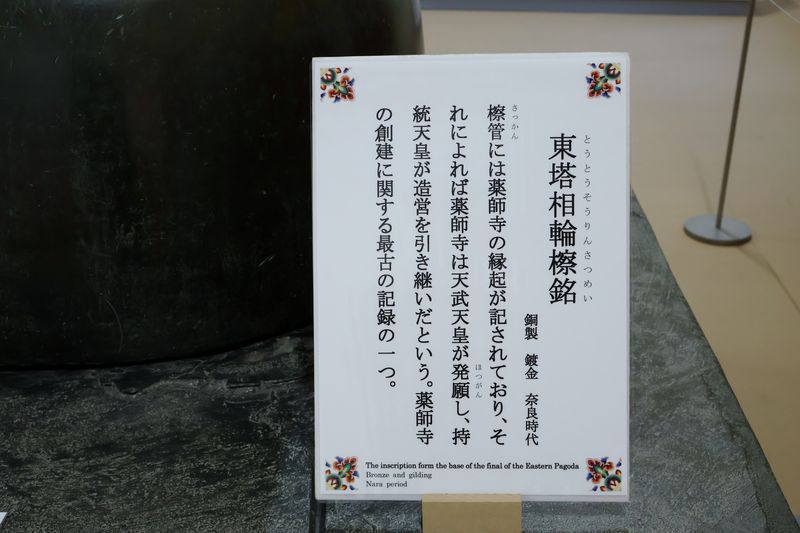 とうとうそうりんさつめい
東塔相輪檫銘
銅製　鍍金　奈良時代
さっかん
檫管には薬師寺の縁起が記されており、そ
れによれば薬師寺は天武天皇が発願し、持
ほつがん
統天皇が造営を引き継いだという。薬師寺
の創建に関する最古の記録の一つ。
The inscription form the base of the final of the Eastern Pagoda
Bronze and gilding
Nara period